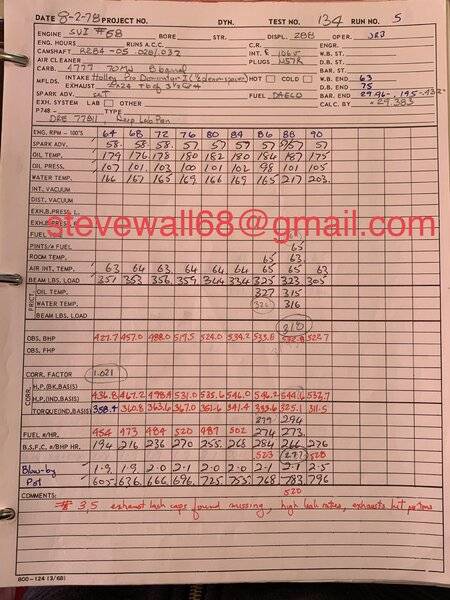 DATE 8-2-78 PROJECT NO. DYN. TEST NO. 134 RUN NO. 5
ENGINE SVI #58 BORE: STR. DISPL. 288 OPER. JRB
ENG. HOURS RUNS A.C.C. C.R. ENGR.
CAMSHAFT R284-05 .028/.032 INT. & 106.5 W.B. ST.
AIR CLEANER PLUGS N57R D.B. ST.
CARB. 4777 BAR. ST.
MFLDS. INTAKE Holley Pro Dominator I HOT COLD W.B. END 63
EXHAUST D.B. END 75
SPARK ADV. FUEL DAECO BAR. END 29.96 - .195 -.432
EXH. SYSTEM LAB OTHER CALC. BY = 29.383
P748 - TYPE
DRE 7781, Deep Lab Pan
ENG. RPM - 100'S 64 68 72 76 80 84 86 88 90
SPARK ADV. 58 58 58 57 57 57 57 57 57
OIL TEMP. 179 176 178 180 182 180 184 187 175
OIL PRESS. 107 101 103 100 101 102 98 101 105
WATER TEMP. 166 167 165 169 166 169 165 217 203
INT. VACUUM
DIST. VACUUM
EXH.B.PRESS. L.
EXH.B.PRESS.
stevewall68@gmail.com
FUEL
PINTS/# FUEL 65
ROOM TEMP. 65 63
AIR INT. TEMP. 63 64 63 64 64 64 65 65 63
BEAM LBS. LOAD 351 353 356 359 344 334 325 323 305
FRICT. OIL TEMP. 327 315
WATER TEMP. 316
BEAM LBS. LOAD
318
OBS. BHP 427.7 457.0 488.0 519.5 524.0 534.2 533.8 522.7
OBS. FHP
CORR. FACTOR 1.021
CORR. H.P.(BK.BASIS)
H.P.(IND.BASIS) 436.8 467.2 498.4 531.0 535.6 546.0 546.2 544.6 532.7
TORQUE(IND.BASIS) 358.4 360.8 363.6 367.0 351.6 341.4 333.6 325.1 311.5
279 294
FUEL #/HR. 454 473 484 520 487 502 274 273
B.S.F.C. #/BHP HR. 194 216 236 270 255 268 284 266 276
523 277 528
Blow-by 1.9 1.9 2.0 2.1 2.0 2.0 2.1 2.1 2.5
Pot 605 636 666 696 725 755 768 783 796
520
COMMENTS:
# 3,5 exhaust lash caps found missing, high leak rates, exhausts hit pistons
800-124 (3/68)